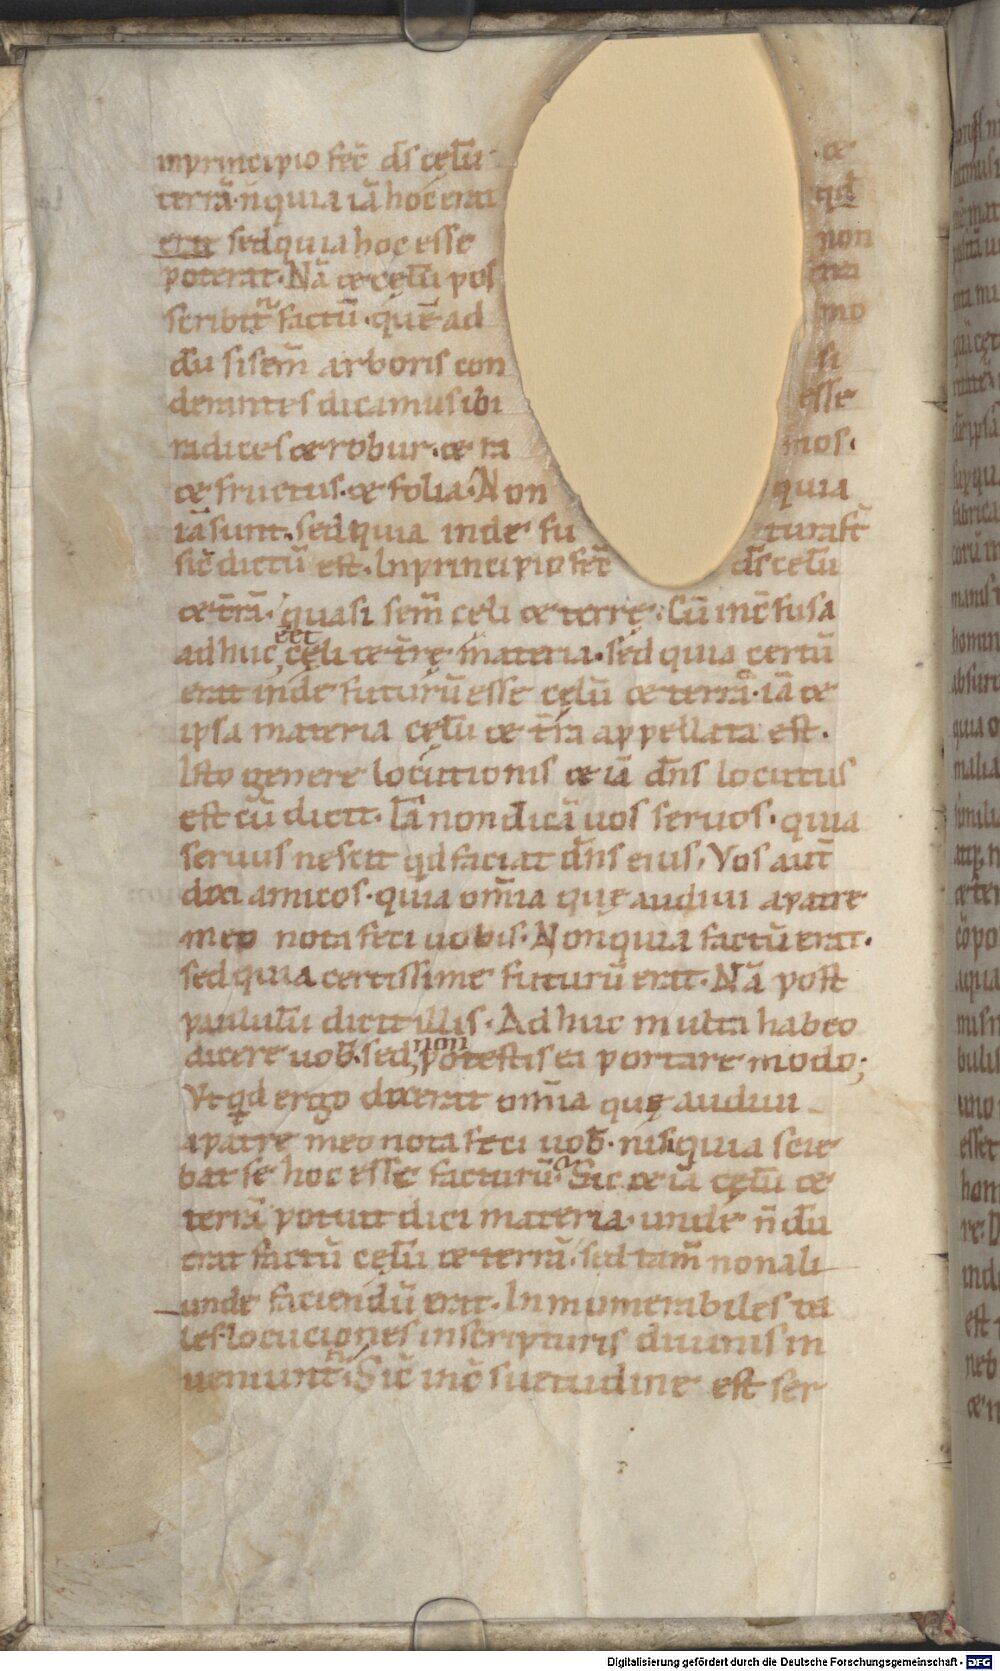 inprincipio fec̄ d̄s cęlū ⁊
terrā. n̄ quia iā hoc erat qd̄
erat sed quia hoc esse non
poterat. Nā & cęlū pos tea
scribit̄ factū. quē ad mo
dū si sem̄ arboris con si
derantes dicamus ibi esse
radices & robur. & ra mos.
& fructus. & folia. Non quia
iā sunt. sed quia inde fu tura st̄
sic̄ dictū est. Inprincipio fec̄ d̄s celū
& t̄rā. quasi sem̄ cęli & terrę. Cū inc̄fusa
adhuc eēt cęli & t̄rę materia. sed quia certū
erat inde futurū esse cęlū & terrā. iā &
ipsa materia cęlū & t̄ra appellata est.
Isto genere locutionis & iā dn̄s locutus
est cū dicit. Iā non dicā uos seruos. quia
seruus nescit qd̄ faciat dn̄s eius. Vos aut̄
dixi amicos. quia om̄ia quę audiui apatre
meo nota feci uobis. Non quia factū erat.
sed quia certissime futurū erat. Nā post
paululū dicit illis. Adhuc multa habeo
dicere uob̄. sed non potestis ea portare modo;
Vt qd ergo dixerat om̄ia quę audiui
apatre meo nota feci uob̄. nisi quia scie
bat se hoc esse facturū. Sic & iā cęlū &
terrā potuit dici materia. unde n̄ dū
erat factū cęlū & terra. sed tam̄ non ali
unde faciendū erat. Innumerabiles ta
les locuciones inscripturis diuinis in
ueniunt̄. Sic̄ inc̄suetudine est ser
Digitalisierung gefördert durch die Deutsche Forschungsgemeinschaft - DFG